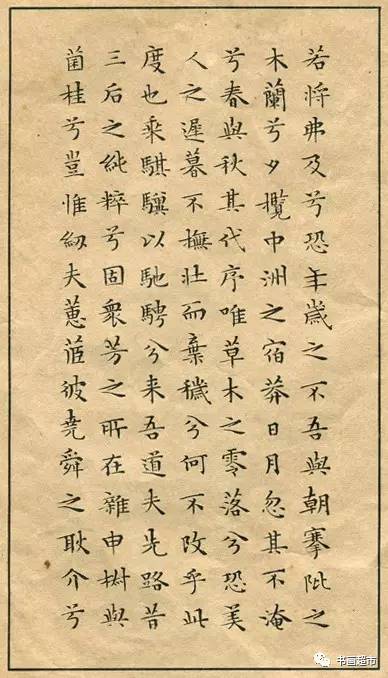 若將弗及兮恐年歲之不吾與朝搴阰之
木蘭兮夕攬中洲之宿莽日月忽其不淹
兮春與秋其代序唯草木之零落兮恐美
人之遲暮不撫壯而棄穢兮何不改乎此
度也乘騏驥以馳騁兮来吾道夫先路昔
三后之純粹兮固衆芳之所在雜申椒與
菌桂兮豈惟紉夫蕙茝彼堯舜之耿介兮
书画超市